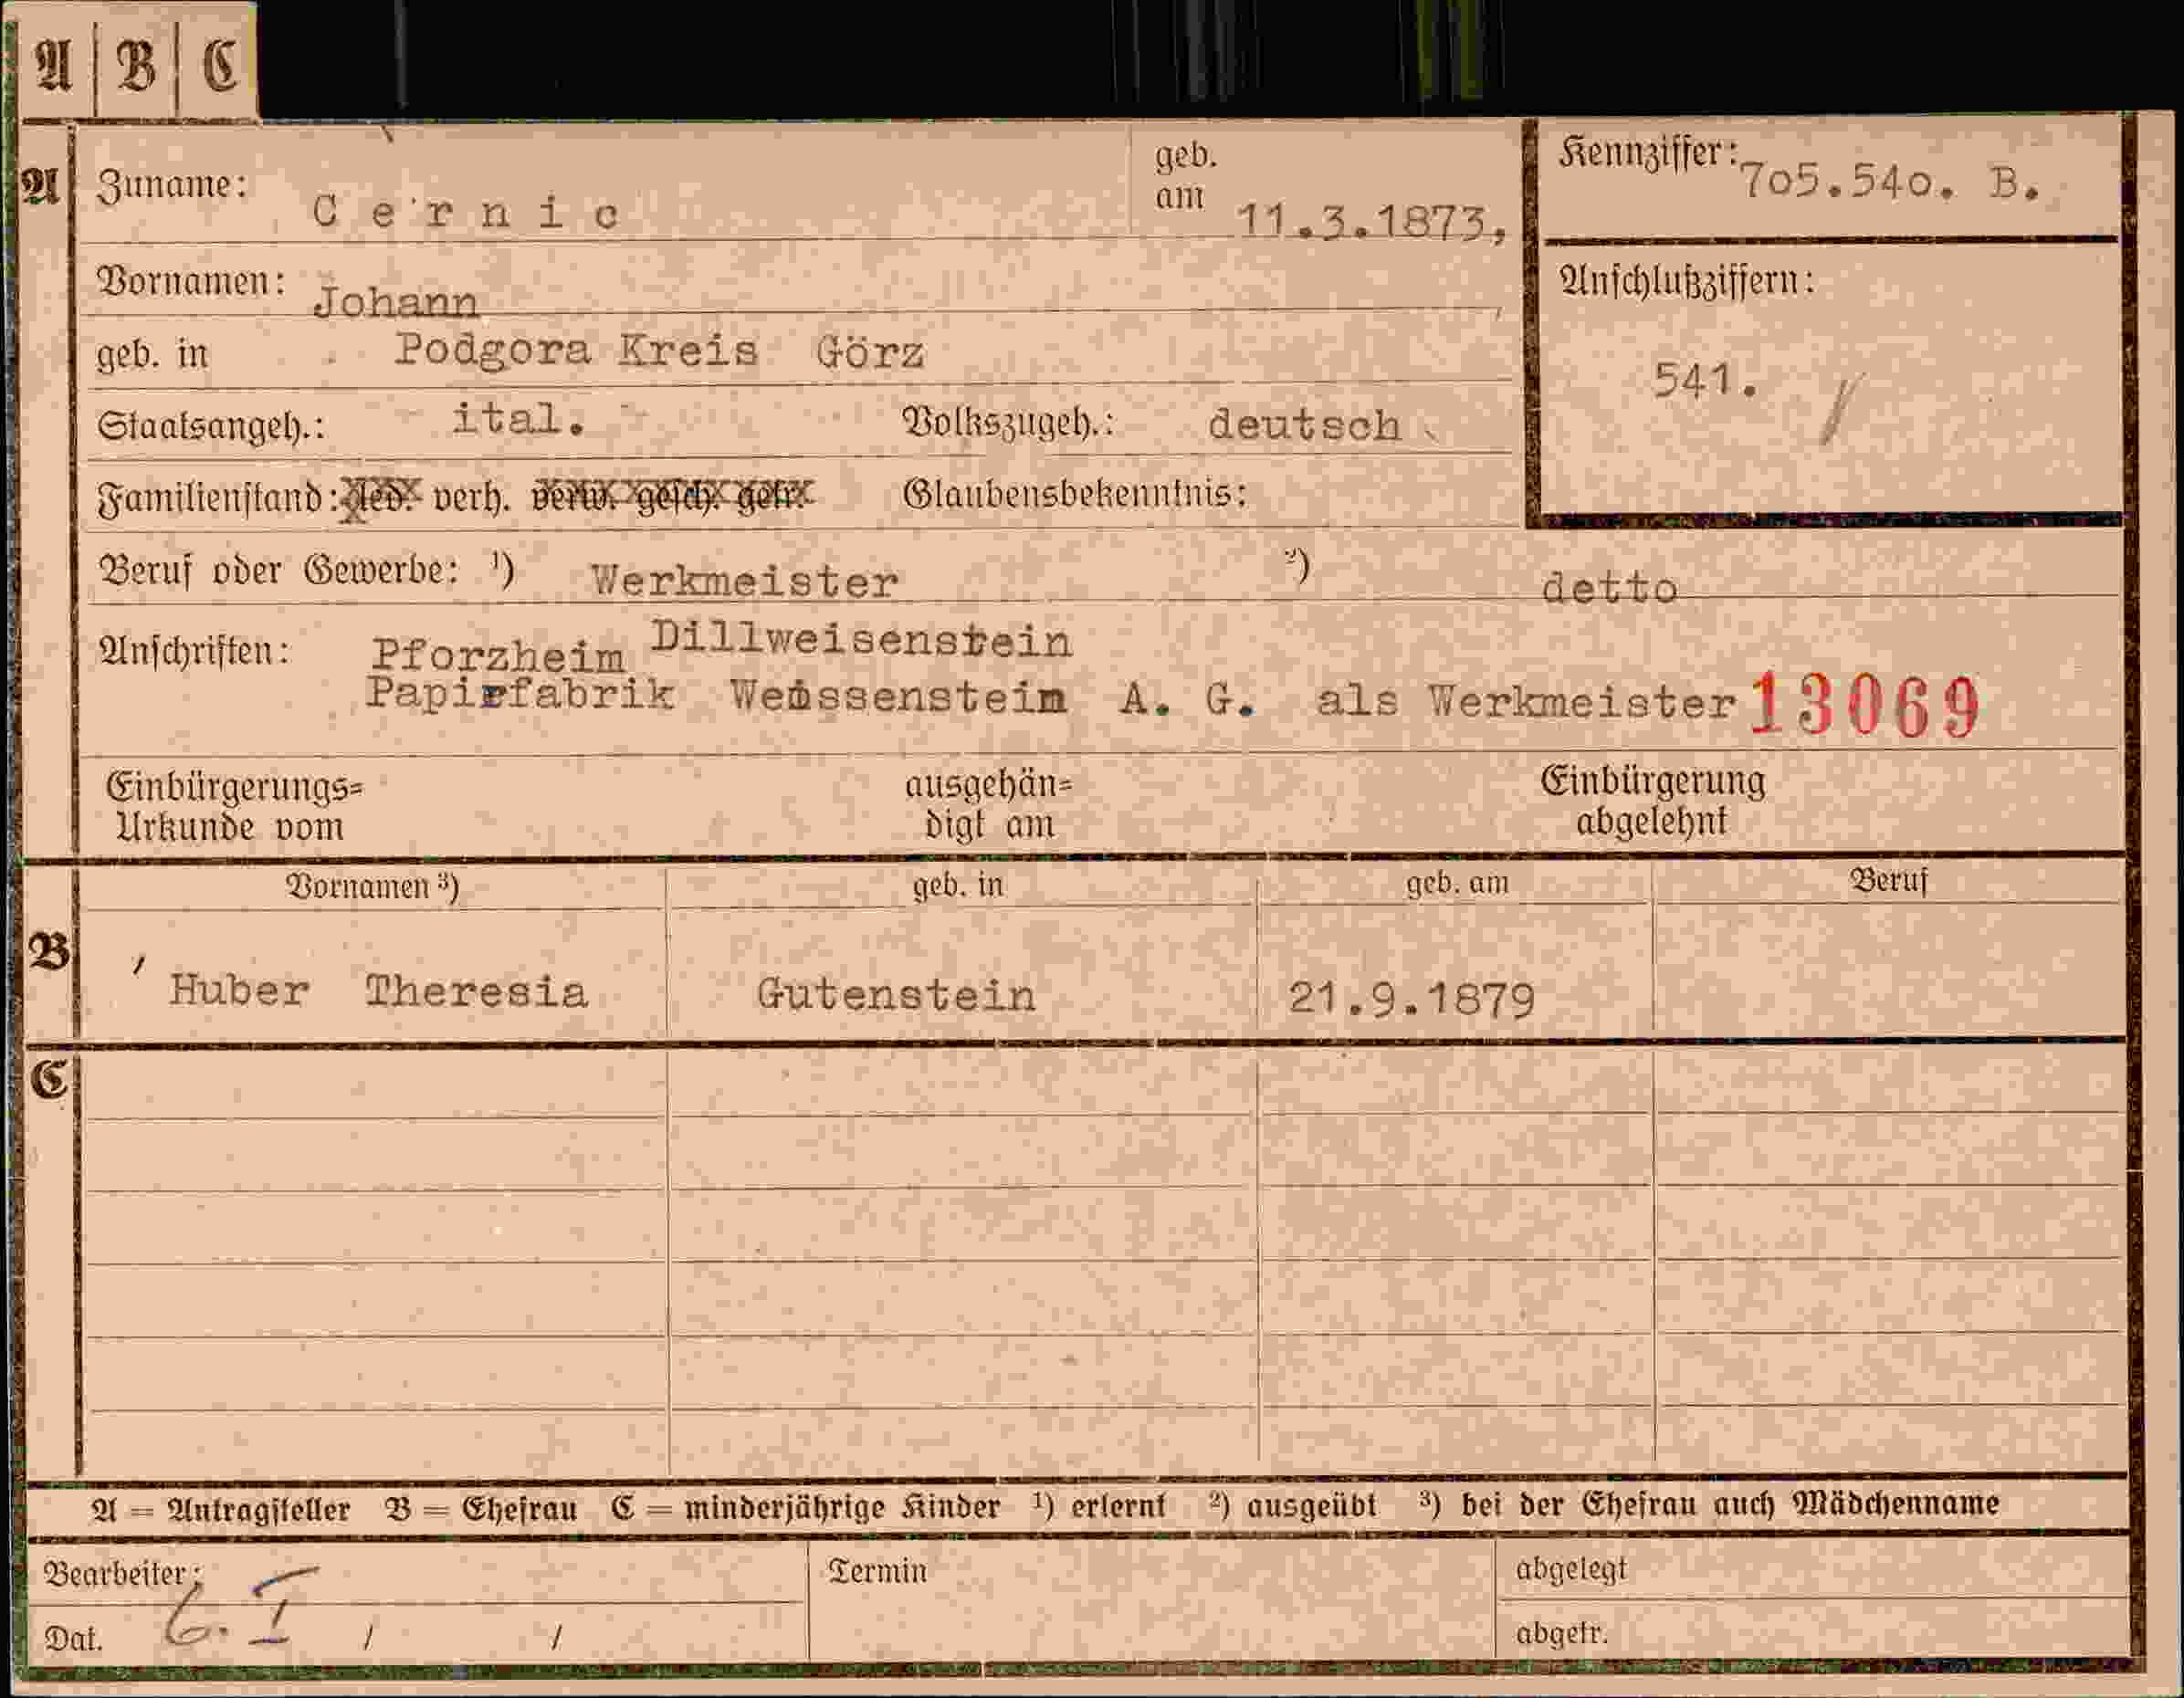 A | B | C
A Zuname: Cernic geb. am 11.3.1873, Kennziffer: 705.540. B.
Vornamen: Johann Anschlußziffern:
geb. in Podgora Kreis Görz 541.
Staatsangeh.: ital. Volkszugeh.: deutsch
Familienstand: led. verh. verw. gesch. getr. Glaubensbekenntnis:
Beruf oder Gewerbe: ¹) Werkmeister ²) detto
Anschriften: Pforzheim Dillweisenstein
Papirfabrik Weissenstein A. G. als Werkmeister 13069
Einbürgerungs= ausgehän= Einbürgerung
Urkunde vom digt am abgelehnt
Vornamen ³) geb. in geb. am Beruf
B Huber Theresia Gutenstein 21.9.1879
C
A = Antragsteller B = Ehefrau C = minderjährige Kinder ¹) erlernt ²) ausgeübt ³) bei der Ehefrau auch Mädchenname
Bearbeiter: Termin abgelegt
Dat. 6. I / / abgetr.